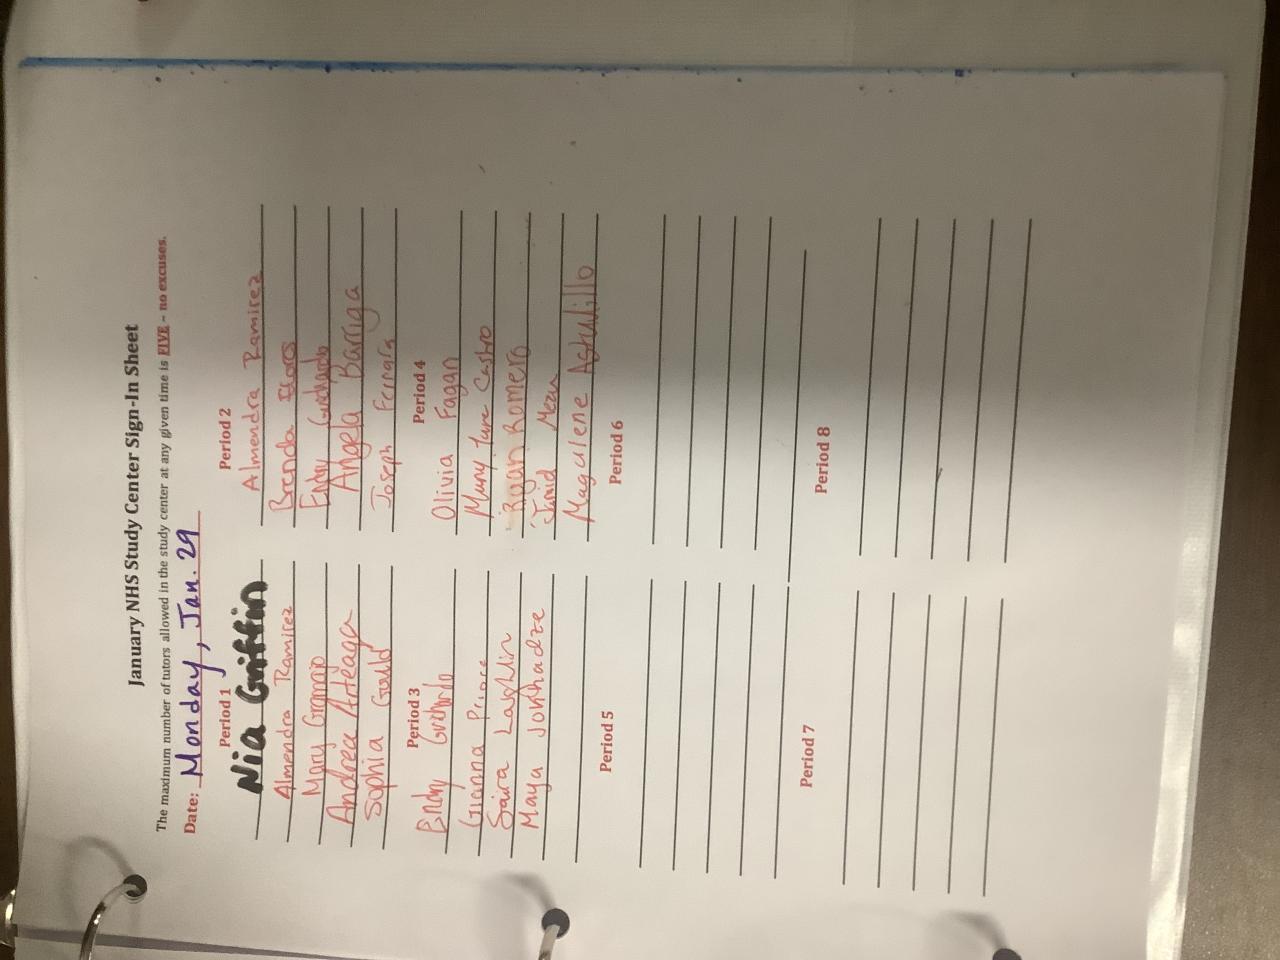 January NHS Study Center Sign-In Sheet
The maximum number of tutors allowed in the study center at any given time is FIVE – no excuses.
Date: Monday, Jan. 29
Period 1
Nia Griffin
Almendra Ramirez
Mary
Andrea Arteaga
Sophia Gould
Period 2
Almendra Ramirez
Brenda Flores
Endry
Angela Barriga
Joseph Ferrara
Period 3
Endry
Gianna Priore
Saira Laughlin
Maya Jokhadze
Period 4
Olivia Fagan
Mary Jane Castro
Ryan Romero
Magalene Astudillo
Period 5
Period 6
Period 7
Period 8